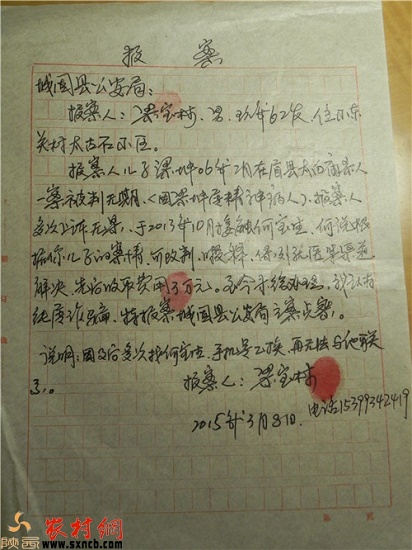 报案
城固县公安局:
报案人:梁宝林,男,现年62岁,住小东
关村太古石小区。
报案人儿子梁坤06年2月在眉县太白商杀人
一案被判无期,(因梁坤是精神病人),报案人
多次上诉无果,于2013年10月接触何宝生,何说根
据你儿子的案情,可改判、
解决,先后收取费用 万元。至今未给办理,
纯属诈骗,特报案城固县公安局立案
说明:因又后多次找何宝生,手机号已换,再无法与他联
了。
报案人:梁宝林
2015年3月8日.
电话15399342419
陕西
农村網
www.sxncb.com